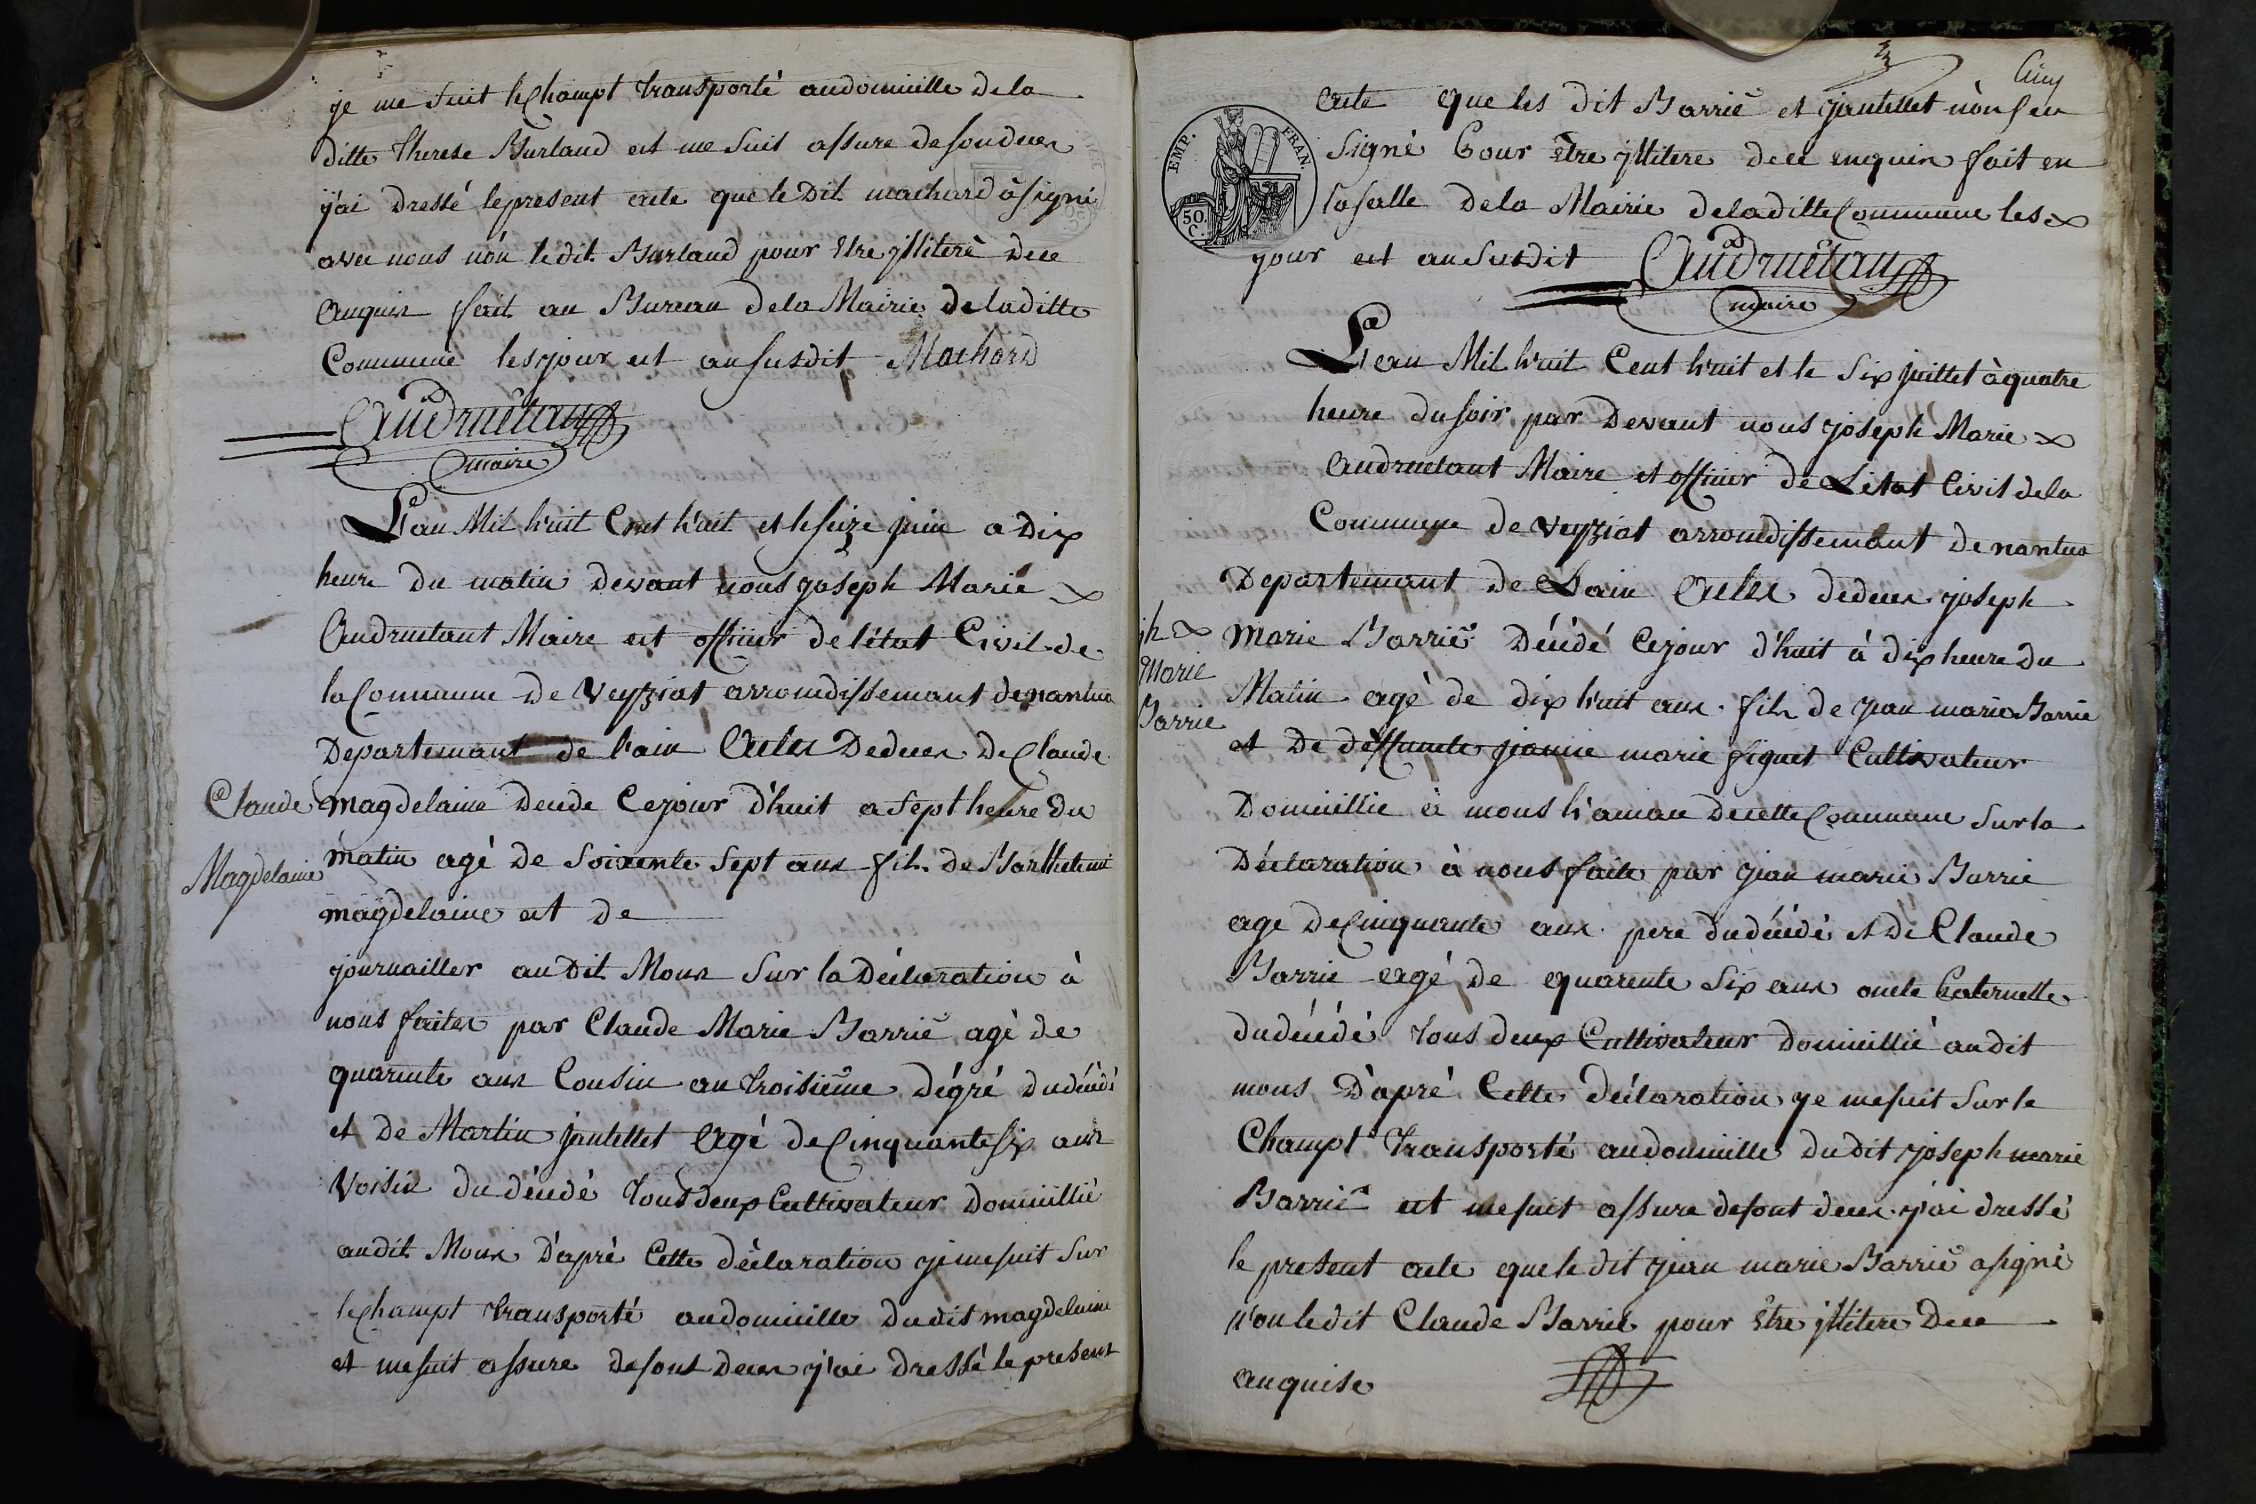 je me suit le Champt transporté au domicille de la
ditte Therese Burland et me suis assure de son deces
j'ai dressé le present acte que le Dit machard à signé
avec nous nón le dit Burland pour être jlliteré De ce
Enquis fait au Bureau de la Mairie de la ditte
Commune les jour et an susdit Machard
Audruétan
maire
L'an Mil huit Cent huit et le seize juin a Dix
heure du matin devant nous joseph Marie
Audruetant Maire et officier de l'état Civil de
la Commune de Veyziat arrondissemant de nantua
Departemant de l'ain Actes De deces De Claude
Claude
Magdelaine
magdelaine decede Ce jour d'huit a sept heure du
matin agé de soixente sept ans fils de Barthelemi
magdelaine et de
journailler au Dit Mons sur la Déclaration à
nous faites par Claude Marie Barrié agé de
quarente ans Cousin au troisième dégré du décédé
et de Martin jantellet Agé de Cinquante six ans
Voisin du décédé tous deux Cultivateur Domicillié
au dit Mons D'apré Cette déclaration je me suit sur
le Champt transporté au domicille du dit magdelaine
et me suit assure de sont deces j'ai dressé le present
Cinq
acte que les dit Barrié et jantellet nón seu
signé Pour être jllitere de ce enquis fait en
la salle de la Mairie de la ditte Commune les
jour et an susdit Audruétan
maire
EMP. FRAN.
50.
C.
L'an Mil huit Cent huit et le six juillet à quatre
heure du soir par Devant nous joseph Marie
Audruetant Maire et officier de L'état Civil de la
Commune de Veyziat arrondissemant de nantua
Departemant de Lain Actes de deces joseph
jh
Marie
Barrie
Marie Barrié Décédé Ce jour d'huit à dix heure du
Matin agé de dix huit ans fils de jean marie Barrié
et de deffuncte jeanne marie figuet Cultivateur
Domicillie à mons h'amau de cette Commune sur la
Déclaration à nous faite par jean marie Barrie
age de Cinquante ans pere du décédé et de Claude
Barrie agé de quarente six ans oncle Paternelle
du décédé tous deux Cultivateur Domicillié au dit
mons D'apré Cette déclaration je me suit sur le
Champt transporté au domicille du dit joseph marie
Barrié et me suit assure de sont deces j'ai dressé
le present acte que le dit jean marie Barrié a signé
n'on le dit Claude Barrié pour être jllitere De ce
anquise